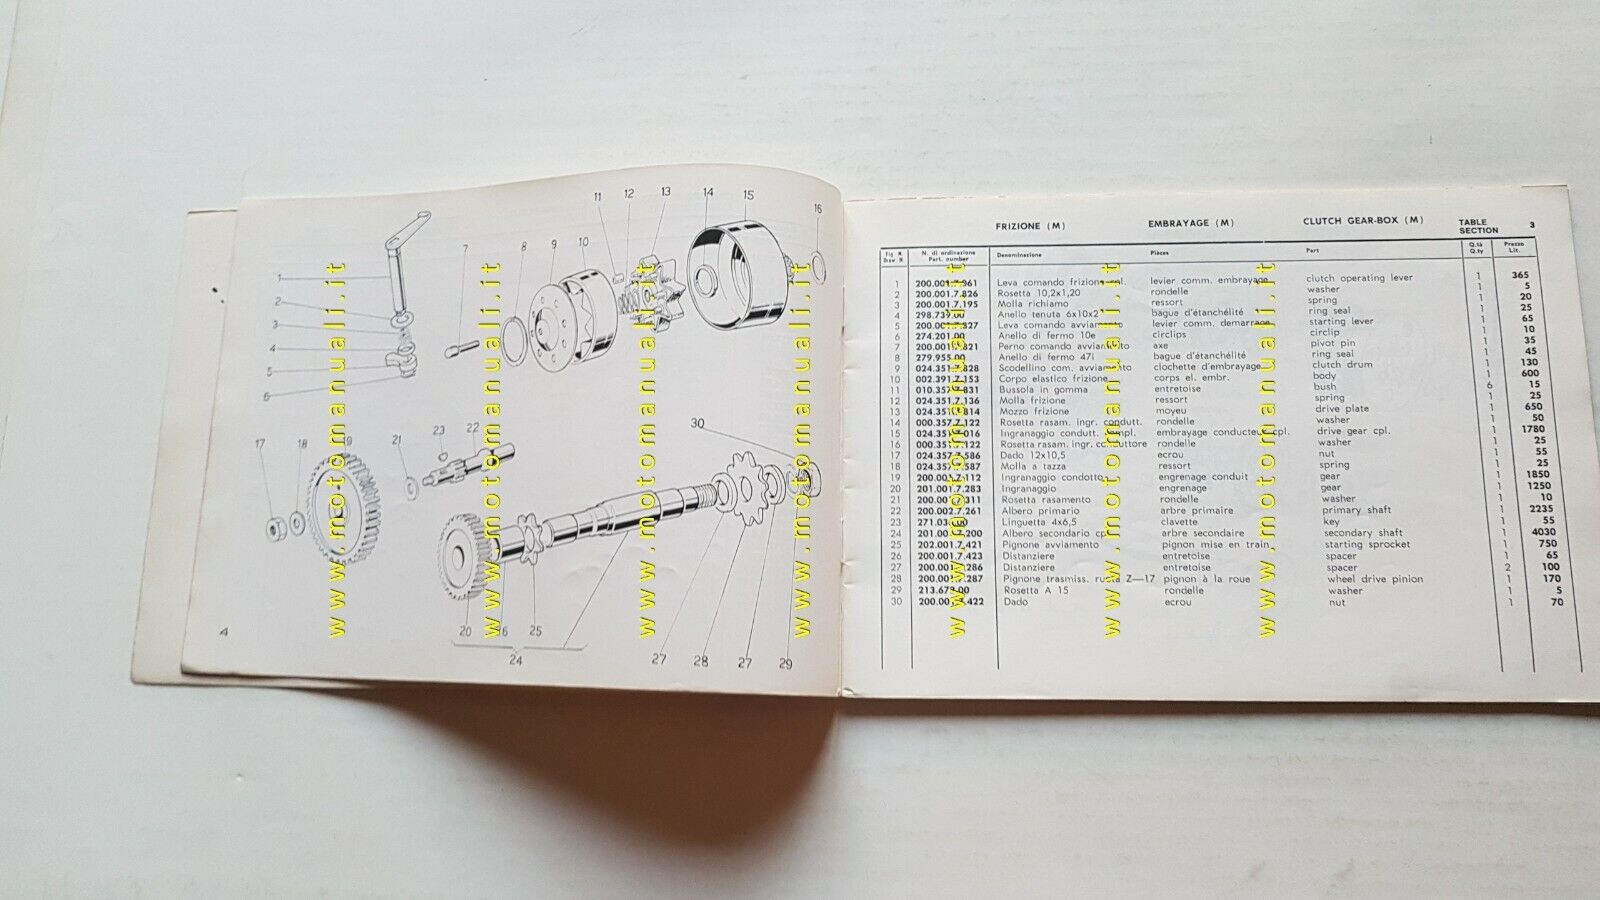 11 12 13 14 15
16
7 8 9 10
1
2
3
4
5
6
17 18 19 21 23 22
30
20 26 25
24
27 28 27 29
4
www.motomanuali.it
www.motomanuali.it
www.motomanuali.it
www.motomanuali.it
www.motomanuali.it
www.motomanuali.it
www.motomanuali.it
FRIZIONE (M) EMBRAYAGE (M) CLUTCH GEAR-BOX (M) TABLE SECTION 3
Fig. N. Draw N. N. di ordinazione Part. number Denominazione Pièces Part Q.tà Q.ty Prezzo Lit.
1 200.001.7.961 Leva comando frizione cpl. levier comm. embrayage clutch operating lever 1 365
2 200.001.7.826 Rosetta 10,2x1,20 rondelle washer 1 5
3 200.001.7.195 Molla richiamo ressort spring 1 20
4 298.739.00 Anello tenuta 6x10x2 bague d'étanchélité ring seal 1 25
5 200.001.7.827 Leva comando avviamento levier comm. demarrage starting lever 1 65
6 274.201.00 Anello di fermo 10e circlips circlip 1 10
7 200.001.7.821 Perno comando avviamento axe pivot pin 1 35
8 279.955.00 Anello di fermo 47i bague d'étanchélité ring seal 1 45
9 024.351.7.828 Scodellino com. avviamento clochette d'embrayage clutch drum 1 130
10 002.391.7.153 Corpo elastico frizione corps el. embr. body 1 600
11 010.357.7.831 Bussola in gomma entretoise bush 6 15
12 024.351.7.136 Molla frizione ressort spring 1 25
13 024.351.7.814 Mozzo frizione moyeu drive plate 1 650
14 000.357.7.122 Rosetta rasam. ingr. condutt. rondelle washer 1 50
15 024.351.7.016 Ingranaggio condutt. compl. embrayage conducteur cpl. drive gear cpl. 1 1780
16 000.357.7.122 Rosetta rasam. ingr. conduttore rondelle washer 1 25
17 024.357.7.586 Dado 12x10,5 ecrou nut 1 55
18 024.357.7.587 Molla a tazza ressort spring 1 25
19 200.002.7.112 Ingranaggio condotto engrenage conduit gear 1 1850
20 201.001.7.283 Ingranaggio engrenage gear 1 1250
21 200.001.7.311 Rosetta rasamento rondelle washer 1 10
22 200.002.7.261 Albero primario arbre primaire primary shaft 1 2235
23 271.03 .00 Linguetta 4x6,5 clavette key 1 55
24 201.001.7.200 Albero secondario cpl. arbre secondaire secondary shaft 1 4030
25 202.001.7.421 Pignone avviamento pignon mise en train starting sprocket 1 750
26 200.001.7.423 Distanziere entretoise spacer 1 65
27 200.001.7.286 Distanziere entretoise spacer 2 100
28 200.001.7.287 Pignone trasmiss. ruota Z—17 pignon à la roue wheel drive pinion 1 170
29 213.679.00 Rosetta A 15 rondelle washer 1 5
30 200.001.7.422 Dado ecrou nut 1 70